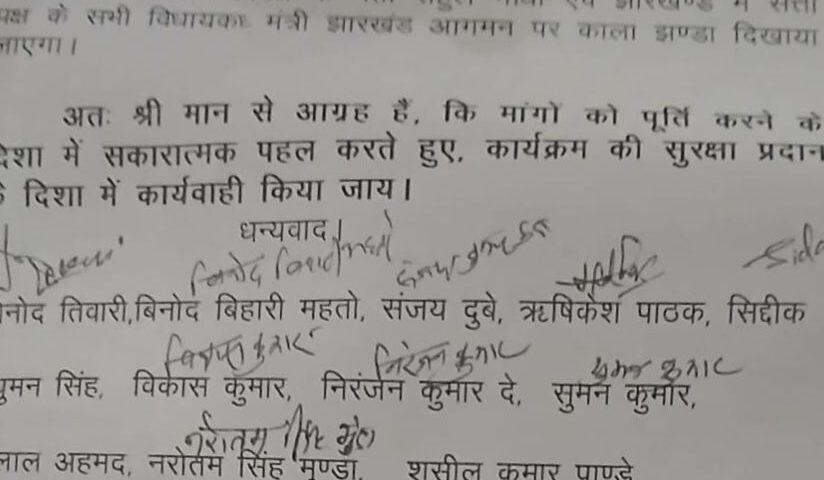 पक्ष के सभी विधायक मंत्री झारखंड आगमन पर काला झण्डा दिखाया
जाएगा।
अतः श्री मान से आग्रह है, कि मांगों को पूर्ति करने के
देशा में सकारात्मक पहल करते हुए, कार्यक्रम की सुरक्षा प्रदान
दिशा में कार्यवाही किया जाय।
धन्यवाद।
विनोद बिहारी महतो संजय कुमार दुबे
नोद तिवारी,बिनोद बिहारी महतो, संजय दुबे, ऋषिकेश पाठक, सिद्दीक
विकास कुमार निरंजन कुमार सुमन कुमार
सुमन सिंह, विकास कुमार, निरंजन कुमार दे, सुमन कुमार,
नरोतम सिंह मुंडा
लाल अहमद, नरोतम सिंह मुण्डा, शुसील कुमार पाण्डे